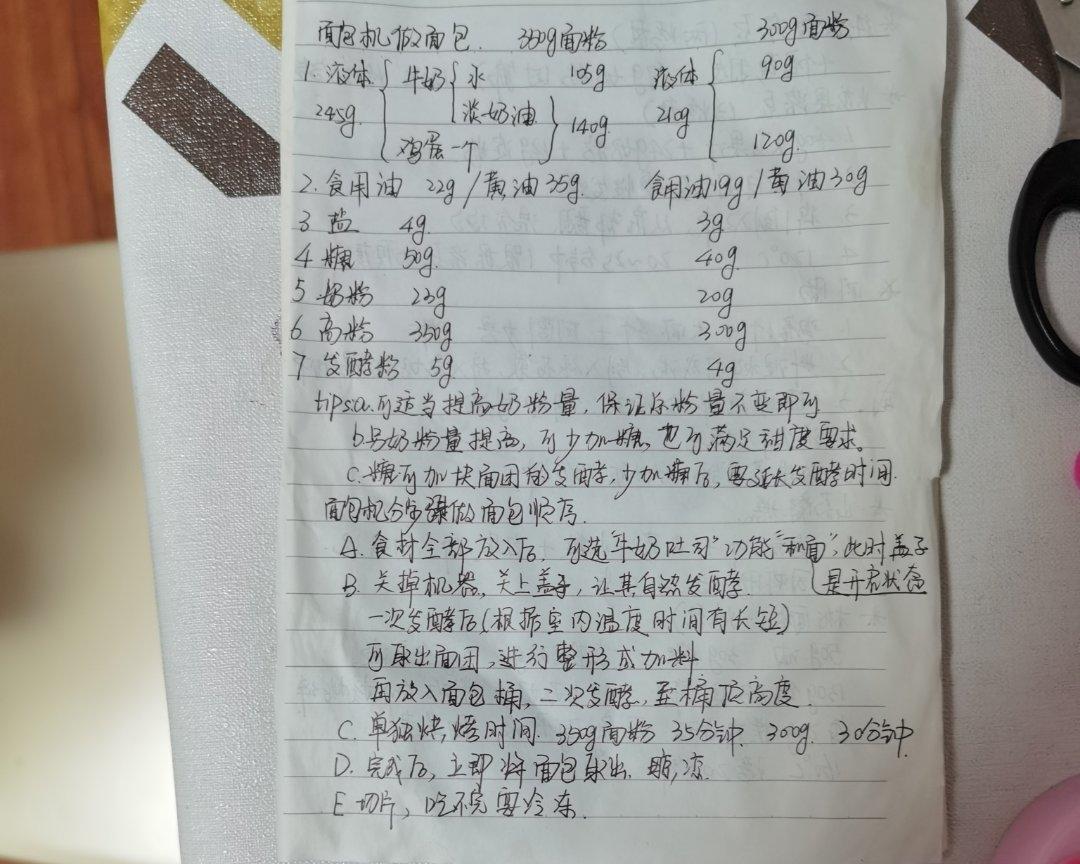 面包机做面包. 350g面粉 300g面粉
1. 液体 牛奶 水 105g 液体 90g
245g. 淡奶油 140g. 210g
鸡蛋一个 120g.
2. 食用油 22g / 黄油35g. 食用油19g / 黄油30g
3 盐 4g 3g
4 糖 50g. 40g.
5 奶粉 23g 20g
6 高粉 350g 300g
7 发酵粉 5g 4g
tips:a.可适当提高奶粉量, 保证总粉量不变即可
b.当奶粉量提高, 可少加糖, 也可满足甜度要求。
c.糖可加快面团的发酵, 少加糖后, 要延长发酵时间.
面包机分步骤做面包顺序.
A. 食材全部放入后, 可选"牛奶吐司"功能"和面", 此时盖子
是开启状态
B. 关掉机器, 关上盖子, 让其自然发酵.
一次发酵后(根据室内温度时间有长短)
可取出面团, 进行整形或加料
再放入面包桶, 二次发酵, 至桶顶高度.
C. 单独烘烤时间. 350g面粉 35分钟. 300g. 30分钟.
D. 完成后, 立即将面包取出. 晾凉.
E 切片, 吃不完要冷冻.